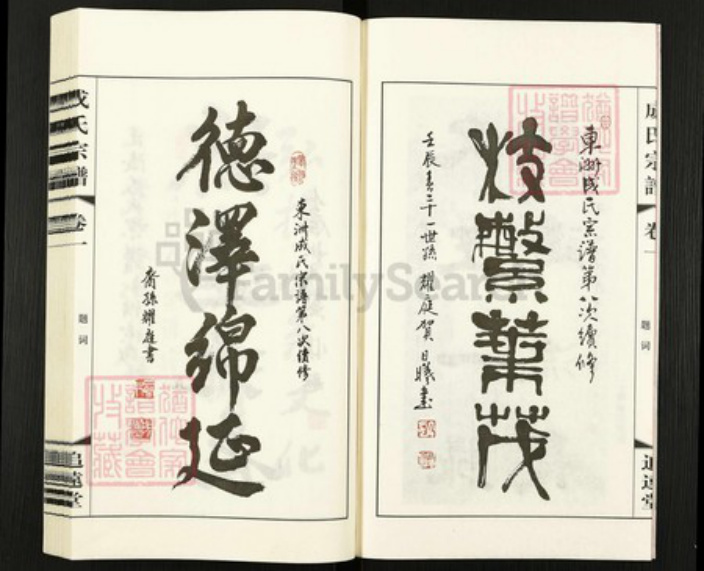 成氏宗譜
卷一
題词
追遠堂
東洲成氏宗譜第八次續修
枝繁葉茂
壬辰春二十一世孫 耀庭賀 日曦書
東洲成氏宗譜第八次續修
德澤綿延
裔孫耀庭書
成氏宗譜
卷一
題词
追遠堂
FamilySearch